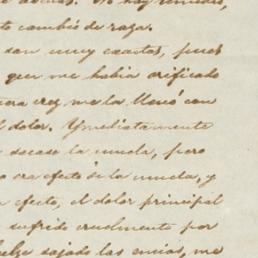 to cambió de raza.
son muy exactos, pues
que me habia orificado
vez me la llenó con
dolor. Ymediatamente
sacase la muela, pero
era efecto de la muela, y
efecto, el dolor principal
sufrido cruelmente por
sajado las encias, me